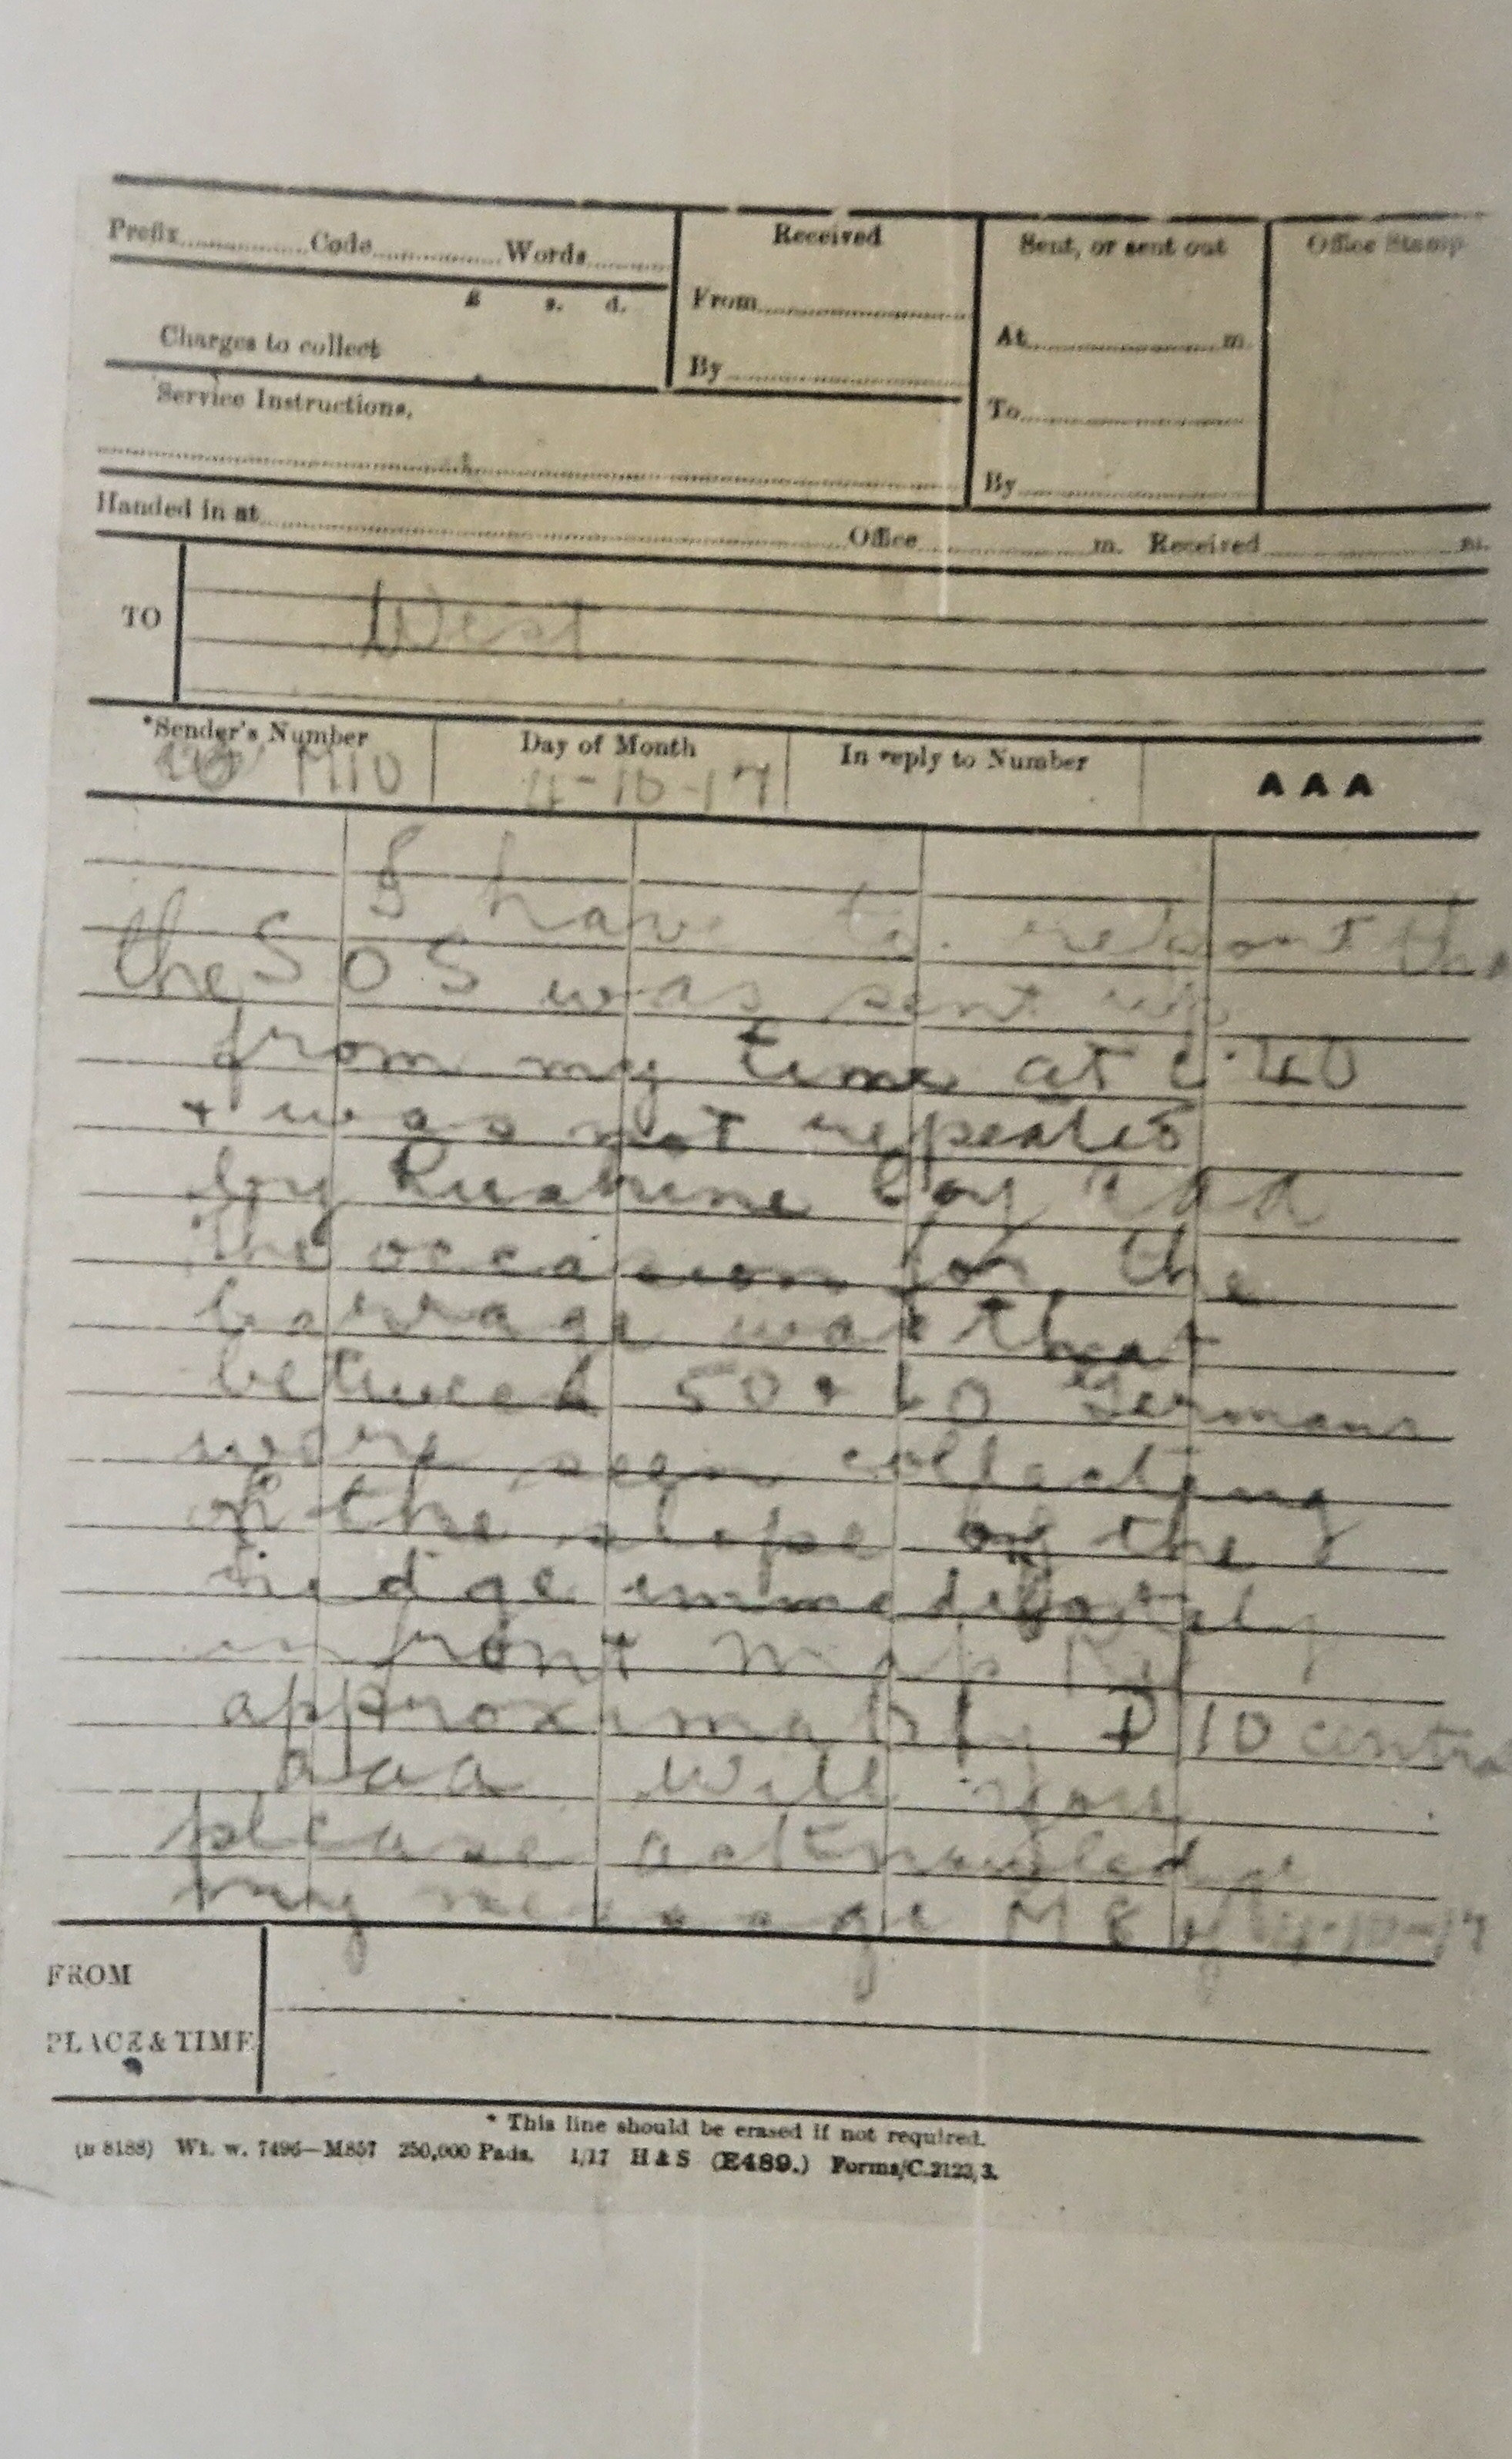 Prefix Code Words
£ s. d.
Charges to collect
Service Instructions.
Received
From
By
Sent, or sent out
At m.
To
By
Office Stamp
Handed in at Office m. Received m.
TO West
*Sender's Number Day of Month In reply to Number AAA
M10 4-10-17
I have to report tha
the SOS was sent up
from my time at 40
+ was not repeated
by by aaa
the occasion for the
barrage was that
between 50 + 60 Germans
were seen collecting
on the slope of the
ridge immediately
in front map Ref
approximately D 10 centra
aaa will you
please acknowledge
my message M 8 of 4-10-17
FROM
PLACE & TIME
* This line should be erased if not required.
(B 8188) Wt. w. 7496—M857 250,000 Pads. 1/17 H & S (E489.) Forms/C.2123/3.